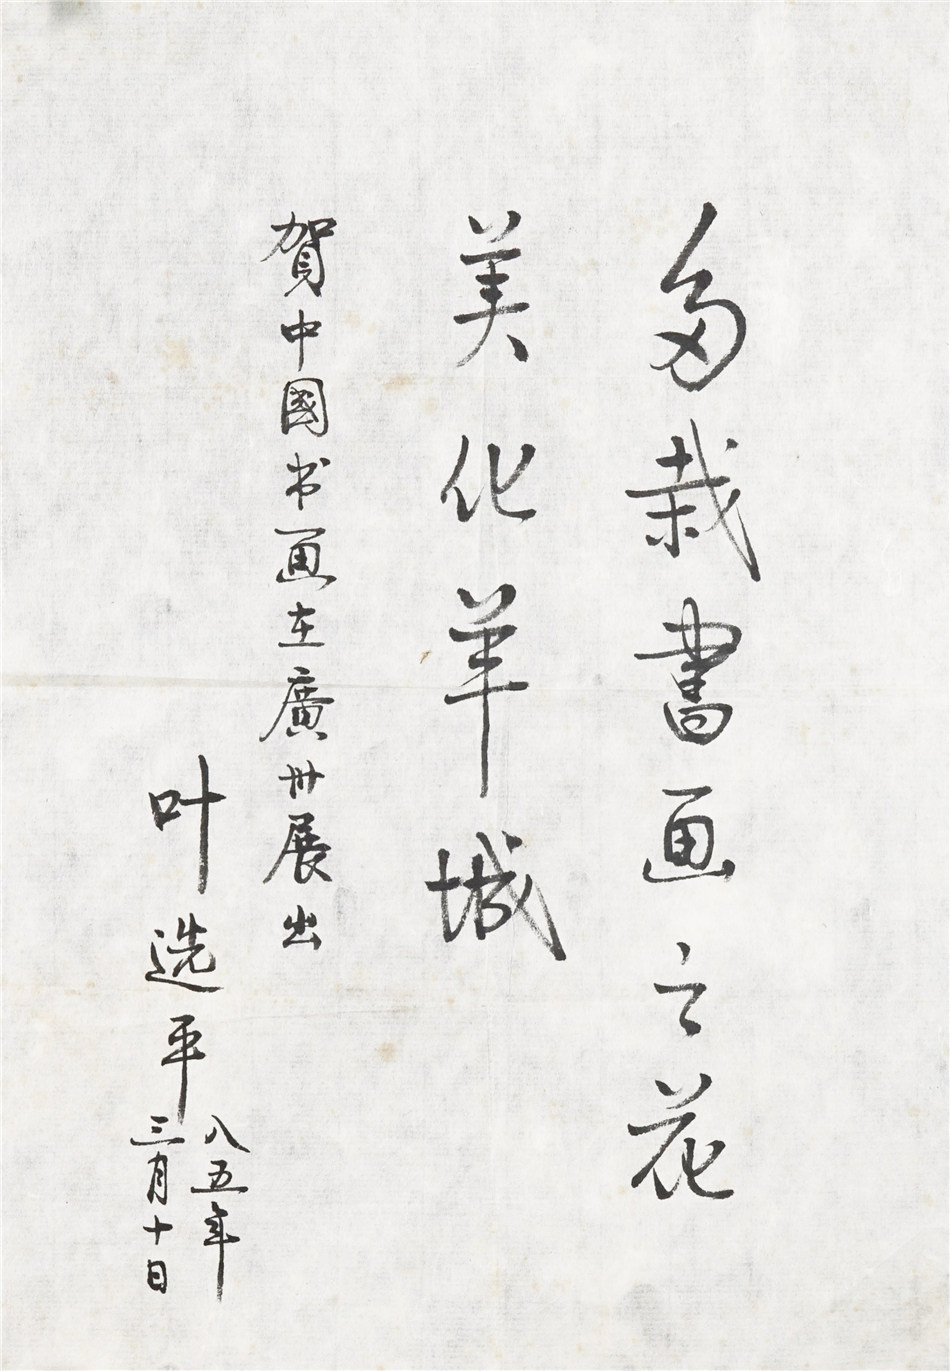 多栽書画之花
美化羊城
賀中國书画在廣州展出
叶选平
八五年
三月十日